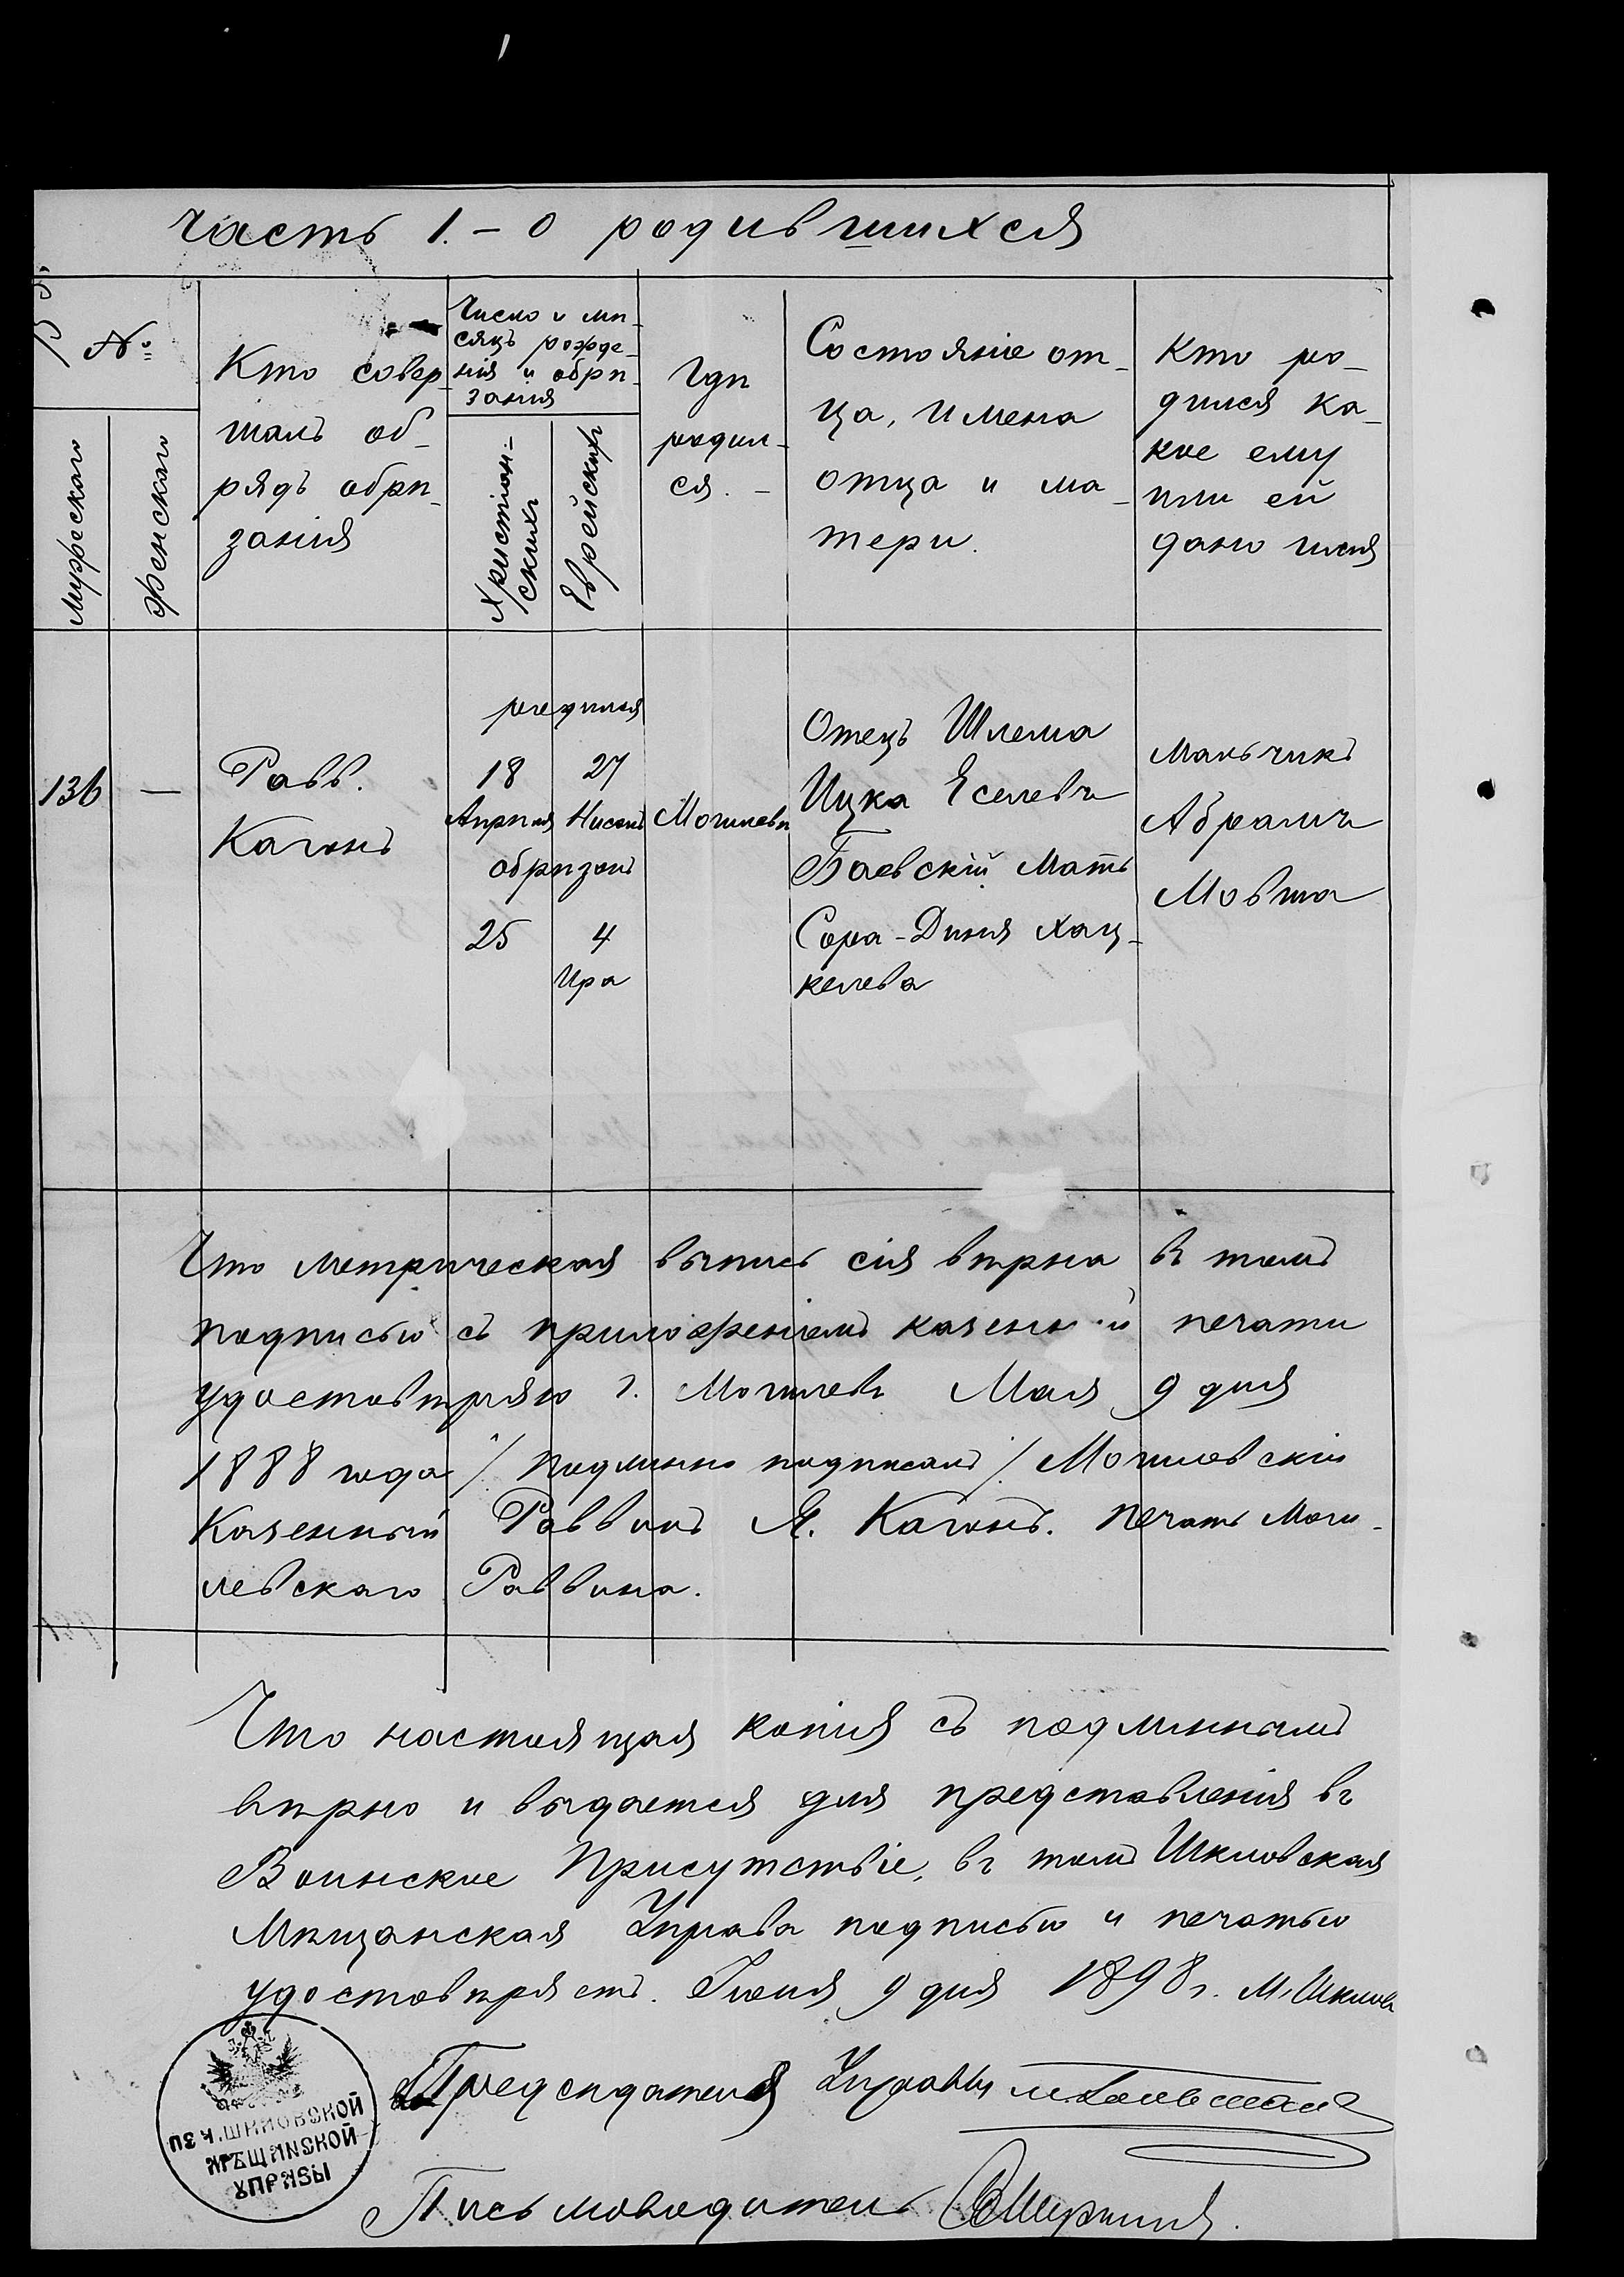 Часть 1. – О родившихся
№
Мужескаго
Женскаго
Кто совер-
шалъ об-
рядъ обрѣ-
занія
Число и мѣ-
сяцъ рожде-
нія и обрѣ-
занія
Христіан-
скихъ
Еврейскихъ
Гдѣ
родил-
ся. –
Состояніе от-
ца, имена
отца и ма-
тери.
Кто ро-
дился ка-
кое ему
или ей
дано имя
136
—
Равв.
Каганъ
родился
18 27
Апрѣля Нисанъ
обрѣзанъ
25 4
Ира
Могилевѣ
Отецъ Шлема
Ицка Еселевъ
Баевскій Мать
Сора-Диня Хац-
келева
Мальчикъ
Абрамъ
Мовша
Что метрическая выпись сія вѣрна въ томъ
подписью съ приложеніемъ казенной печати
удостовѣряю г. Могилевъ Мая 9 дня
1888 года / подлинно подписалъ / Могилевскій
Казенный Раввинъ Я. Каганъ. Печать Моги-
левскаго Раввина.
Что настоящая копія съ подлиннымъ
вѣрно и выдается для представленія въ
Воинское Присутствіе, въ томъ Шкловская
Мѣщанская Управа подписью и печатью
удостовѣряетъ. Іюня 9 дня 1898 г. М. Шкловъ
Предсѣдателя Управы
ШКЛОВСКОЙ
МѢЩАНСКОЙ
УПРАВЫ
Письмоводитель